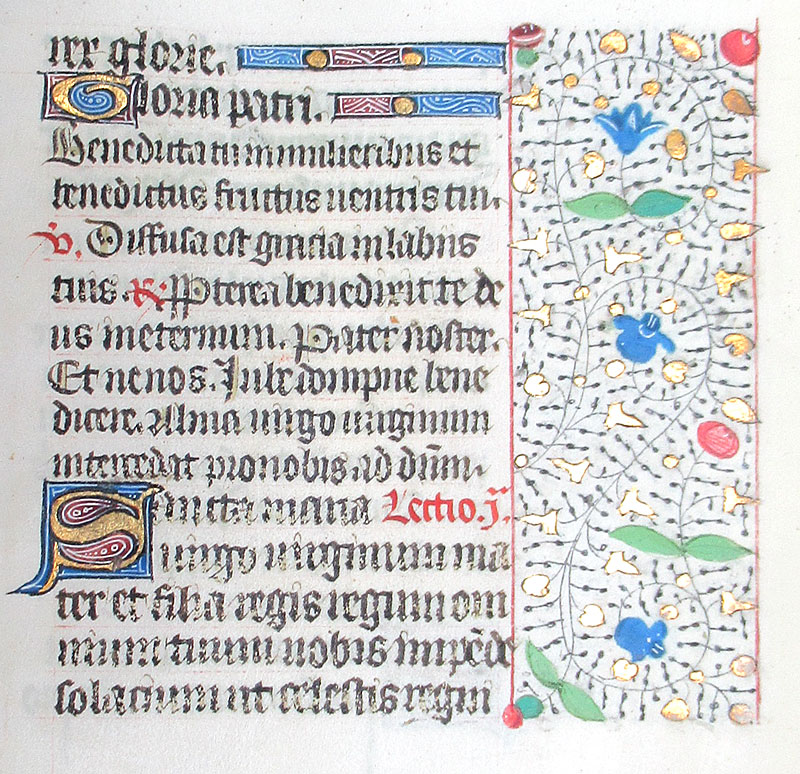 rex glorie.
Gloria patri.
Benedicta tu in mulieribus et
benedictus fructus uentris tui.
v. Diffusa est gracia in labiis
tuis. R. Propterea benedixit te de
us in eternum. Pater noster.
Et ne nos. Iube dompne bene
dicere. Alma uirgo uirginum
intercedat pro nobis ad dn̄m.
Sancta maria Lectio .j.
uirgo uirginum ma
ter et filia regis regum om
nium tuum nobis impēde
solacium ut celestis regni